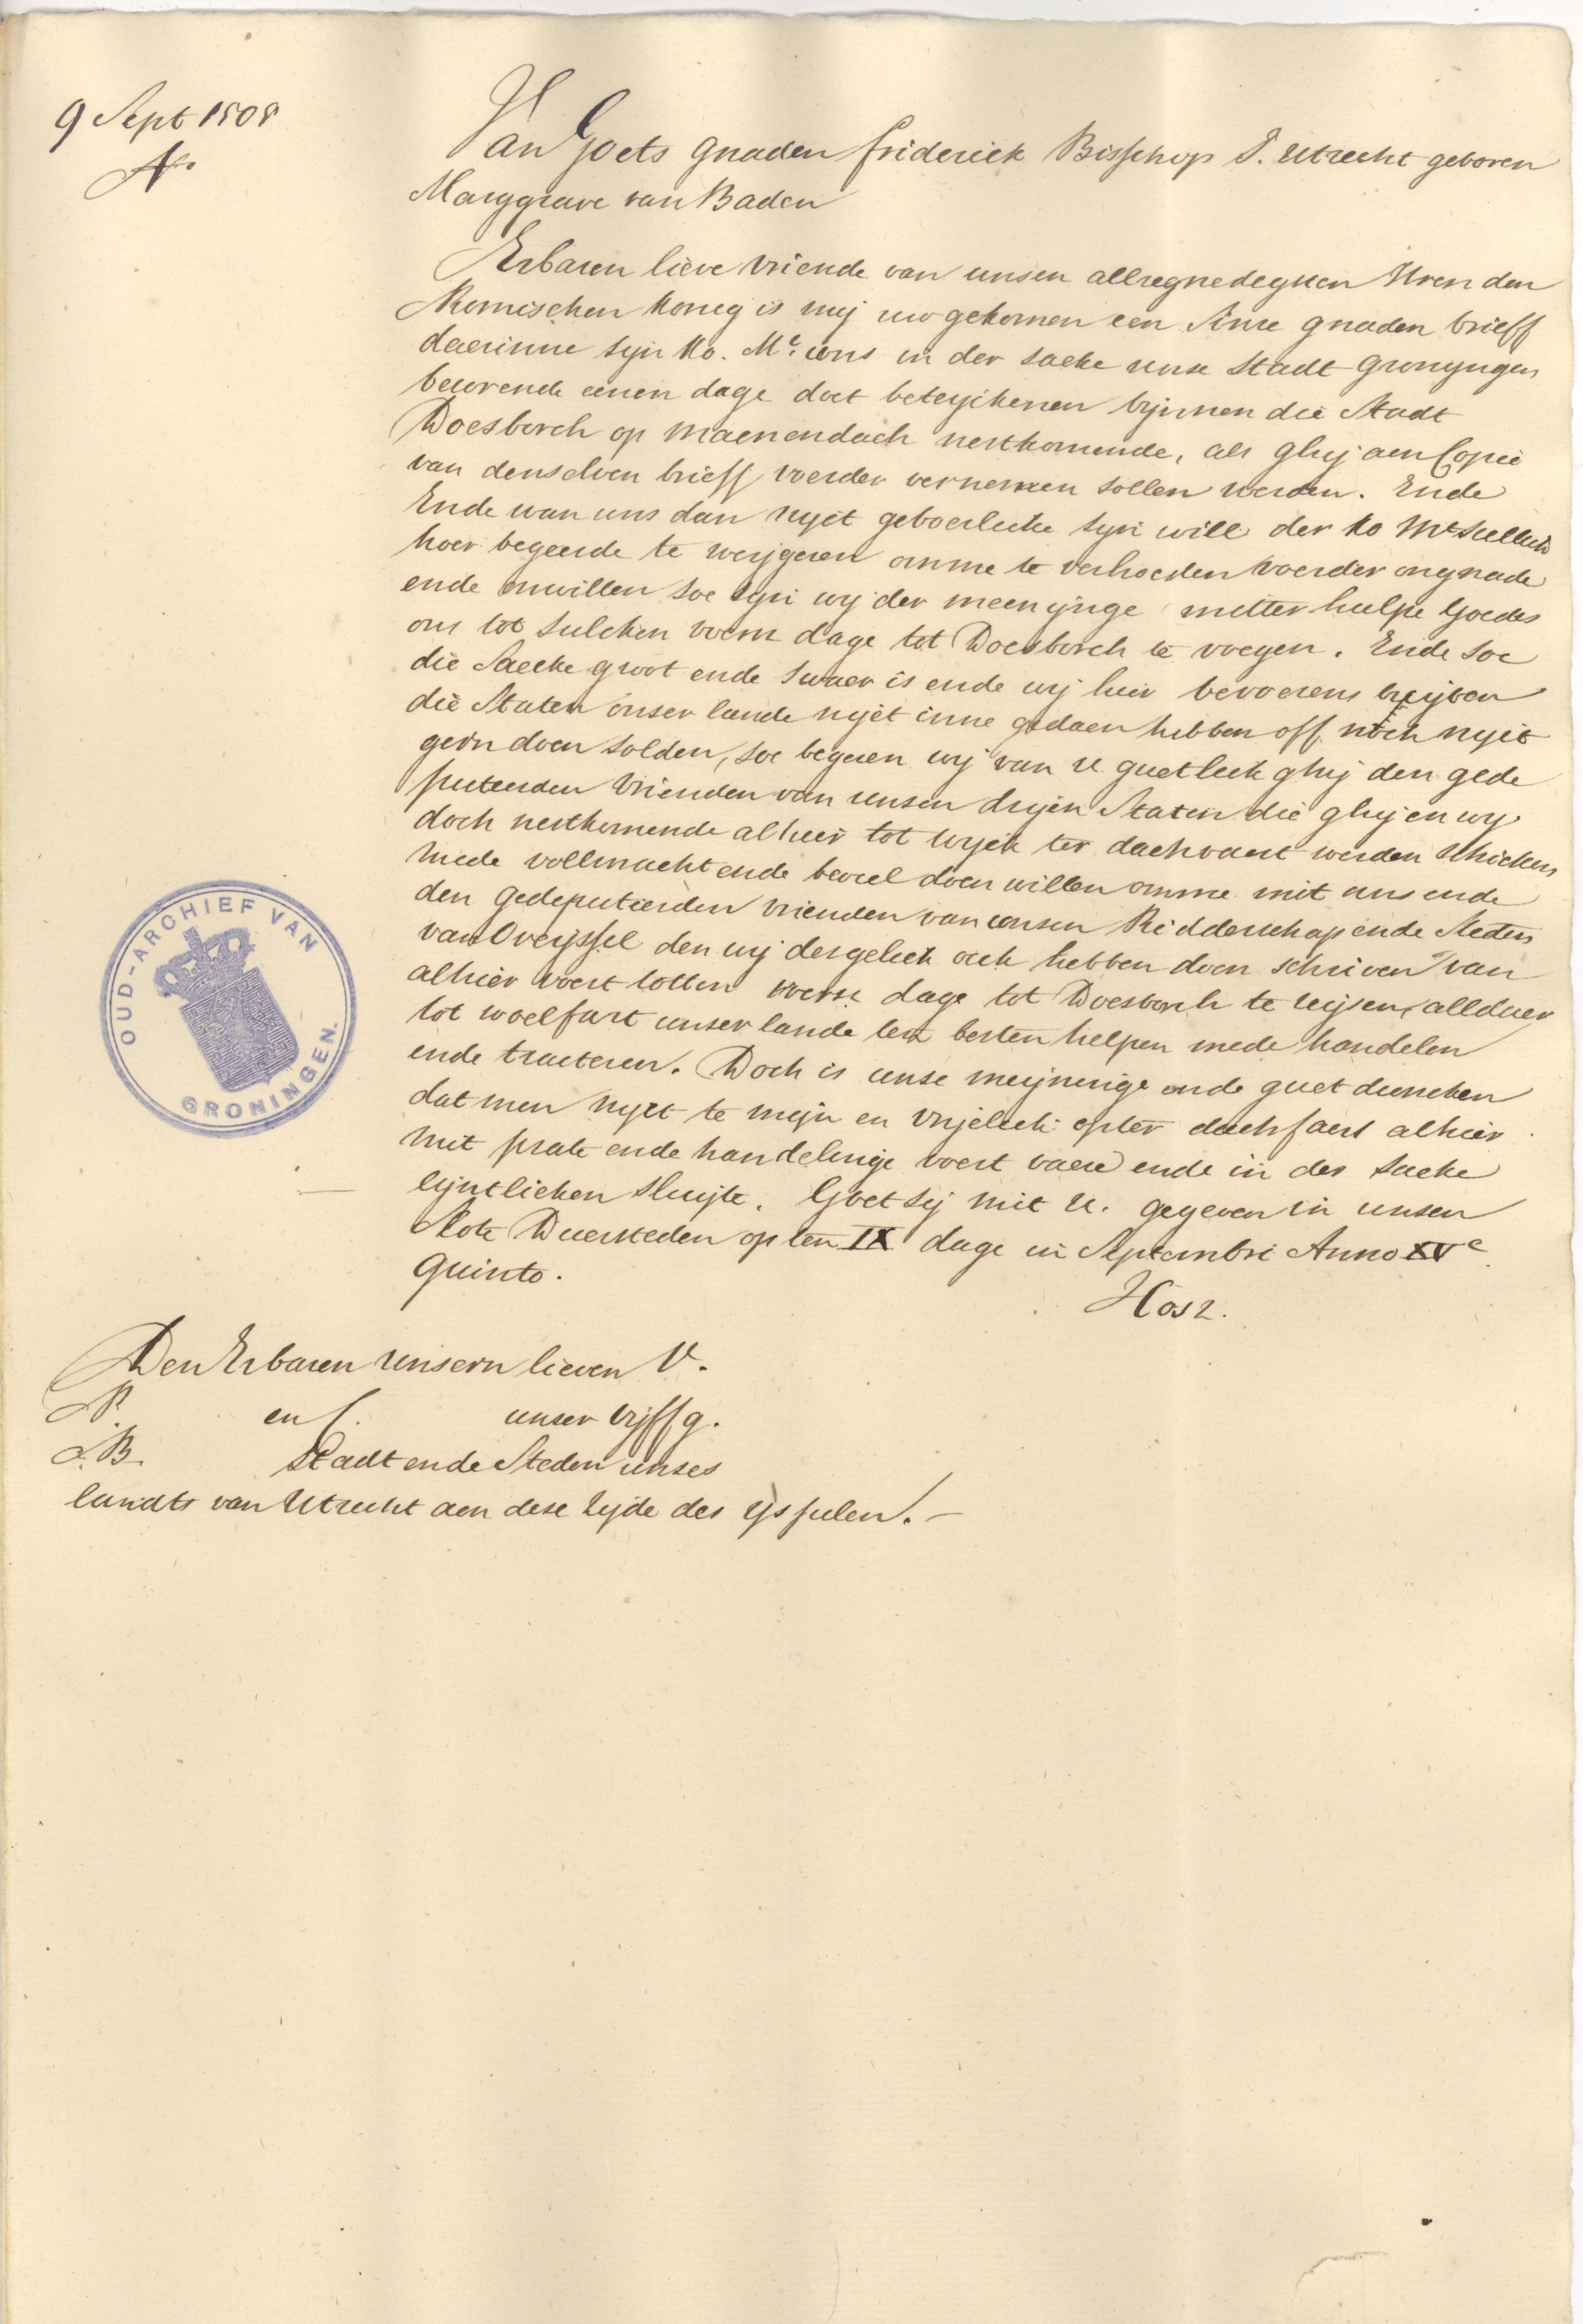 9 Sept 1505
No
Van Goets gnaden frideriek Bisschop t. Utrecht geboren
Marggrave van Baden
Erbaren lieve vriende van unsen allregnedegsten Hren den
Romischen Konig is mij nw gekomen een Sinre gnaden brieff
daerinne syn Ko. Mt. uns in der saeke unse Stadt Gronyngen
beurende eenen dage doet beteyckenen bynnen die Stadt
Doesborch op maenendach nestkomende, als ghij aen Copie
van denselven brieff voerder vernemen sollen werden. Ende
Ende wan uns dan nyet geboerlicke syn will der Ko Mt sullick
hoer begeerde te weygeren omme te verhoeden voerder ongnade
ende onwillen soe syn wy der meenynge mitter hulpe Goedes
ons tot sulcken voern dage tot Doesborch te voegen. Ende soe
die Saecke groot ende swaer is ende wy hier bevoerens buyten
die Staten onser lande nyet inne gedaen hebben off noch nyet
gern doen solden, soe begeren wy van u guetleck ghij den gede
puteerden vrienden van unsen dryen Staten die ghij en wy
doch nestkomende alhier tot Wyck ter dachvaert werden schicken
mede vollmacht ende beveel doen willen omme mit uns ende
den gedeputeerden vrienden van unsen Ridderschap ende Steden
van Overyssel den wy desgeleck oeck hebben doen schriven van
alhier voert totten voersz dage tot Doesborch te reysen, alldaer
tot woelfart unser lande ten besten helpen mede handelen
ende tracteren. Doch is unse meynunge ende guet duncken
dat men nyet te myn en vryeleck opter dachfaert alhier
mit prate ende handelinge voert vaere ende in der saeke
eyntlicken sluyte. Goet sij mit U. gegeven in unsen
Slote Duersteden op ten IX dage in Septembri Anno XVc
quinto.
Hosz.
Den Erbaren unsern lieven V.
P. en C. unser vijff g.
B. Stadt ende Steden unses
landts van Utrecht aen dese zyde der Yssulen.
OUD-ARCHIEF VAN
GRONINGEN.